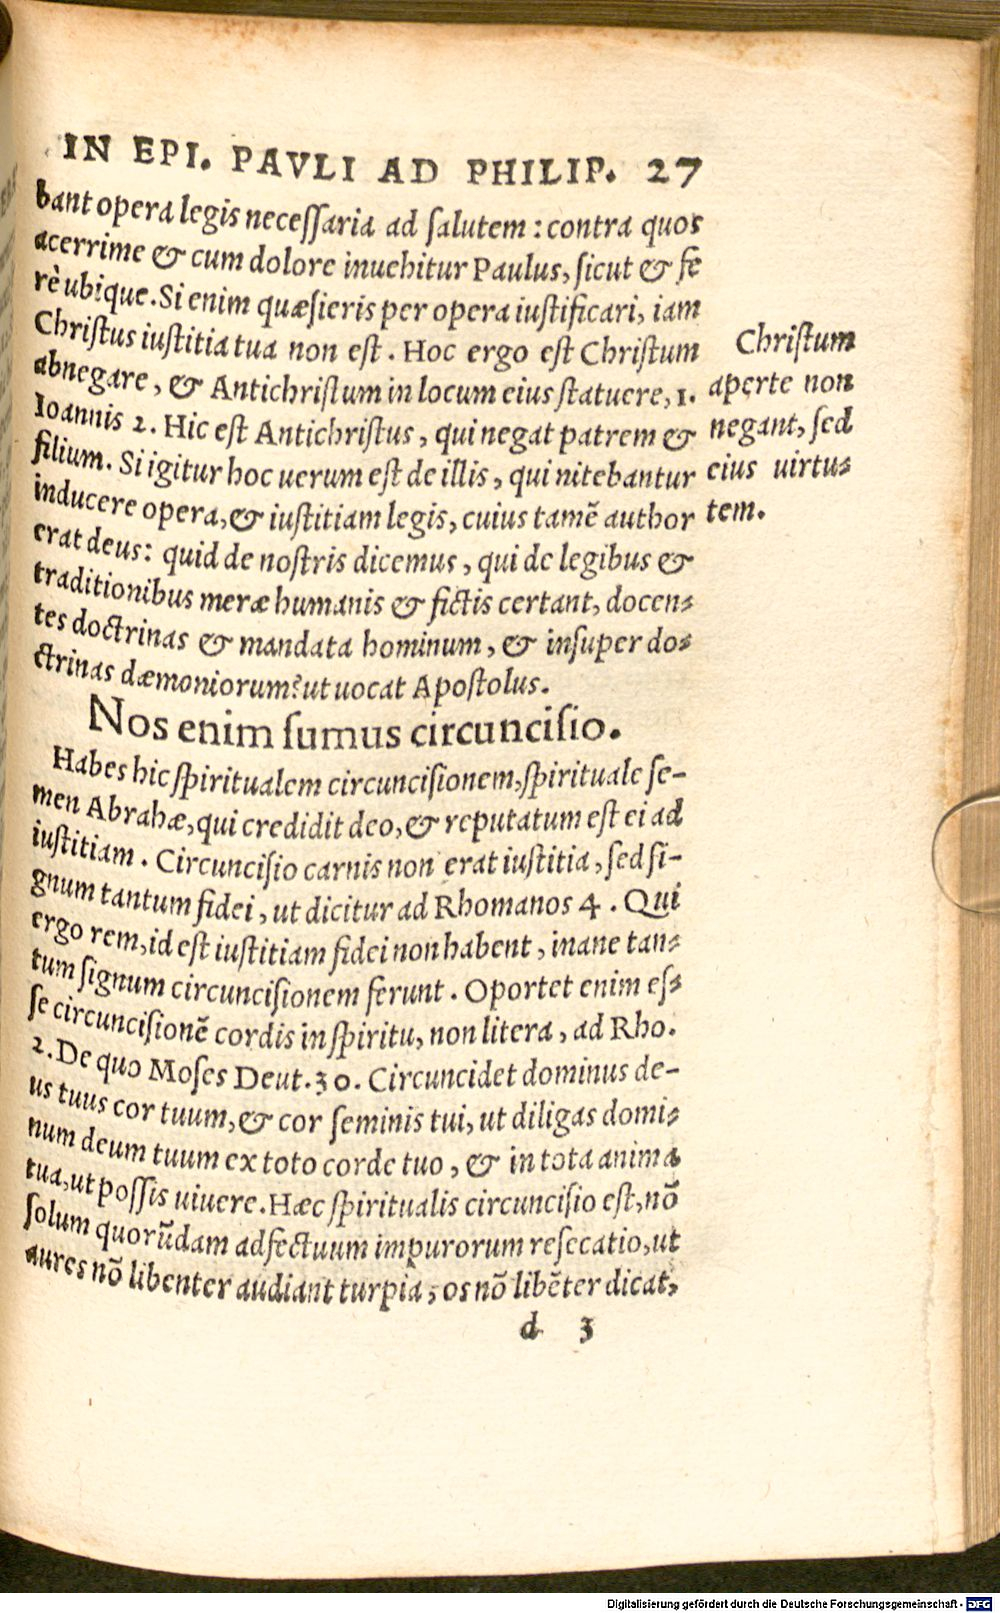 IN EPI. PAVLI AD PHILIP. 27
bant opera legis neceſſaria ad ſalutem: contra quos
acerrime & cum dolore inuehitur Paulus, ſicut & fe
rè ubique. Si enim quæſieris per opera iuſtificari, iam
Chriſtus iuſtitia tua non eſt. Hoc ergo eſt Chriſtum
abnegare, & Antichriſtum in locum eius ſtatuere, 1.
Ioannis 2. Hic eſt Antichriſtus, qui negat patrem &
filium. Si igitur hoc uerum eſt de illis, qui nitebantur
inducere opera, & iuſtitiam legis, cuius tamē author
erat deus: quid de noſtris dicemus, qui de legibus &
traditionibus meræ humanis & fictis certant, docen-
tes doctrinas & mandata hominum, & inſuper do-
ctrinas dæmoniorum? ut uocat Apoſtolus.
Chriſtum
aperte non
negant, ſed
eius uirtu-
tem.
Nos enim ſumus circunciſio.
Habes hic ſpiritualem circunciſionem, ſpirituale ſe-
men Abrahæ, qui credidit deo, & reputatum eſt ei ad
iuſtitiam. Circunciſio carnis non erat iuſtitia, ſed ſi-
gnum tantum fidei, ut dicitur ad Rhomanos 4. Qui
ergo rem, id eſt iuſtitiam fidei non habent, inane tan-
tum ſignum circunciſionem ferunt. Oportet enim eſ-
ſe circunciſionē cordis in ſpiritu, non litera, ad Rho.
2. De quo Moſes Deut. 30. Circuncidet dominus de-
us tuus cor tuum, & cor ſeminis tui, ut diligas domi-
num deum tuum ex toto corde tuo, & in tota anima
tua, ut poſſis uiuere. Hæc ſpiritualis circunciſio eſt, nō
ſolum quorūdam adfectuum impurorum reſecatio, ut
aures nō libenter audiant turpia, os nō libēter dicat,
d 3
Digitalisierung gefördert durch die Deutsche Forschungsgemeinschaft - DFG